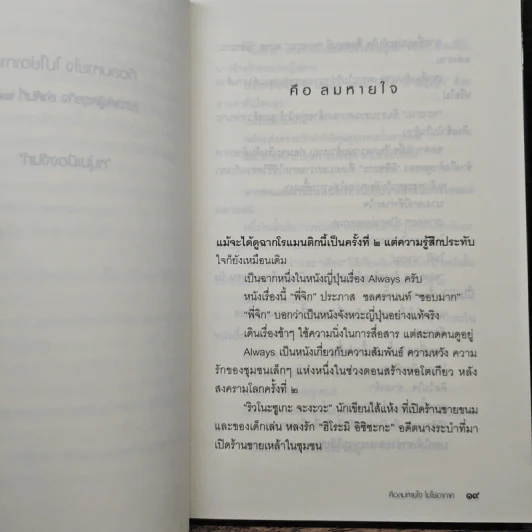 คือ ลมหายใจ
แม้จะได้ดูฉากโรแมนติกนี้เป็นครั้งที่ ๒ แต่ความรู้สึกประทับ
ใจก็ยังเหมือนเดิม
เป็นฉากหนึ่งในหนังญี่ปุ่นเรื่อง Always ครับ
หนังเรื่องนี้ “พี่จิก” ประภาส ชลศรานนท์ “ชอบมาก”
“พี่จิก” บอกว่าเป็นหนังจังหวะญี่ปุ่นอย่างแท้จริง
เดินเรื่องช้าๆ ใช้ความนิ่งในการสื่อสาร แต่สะกดคนดูอยู่
Always เป็นหนังเกี่ยวกับความสัมพันธ์ ความหวัง ความ
รักของชุมชนเล็กๆ แห่งหนึ่งในช่วงตอนสร้างหอโตเกียว หลัง
สงครามโลกครั้งที่ ๒
“ริวโนะซูเกะ จะงะวะ” นักเขียนไส้แห้ง ที่เปิดร้านขายขนม
และของเด็กเล่น หลงรัก “ฮิโระมิ อิชิซะกะ” อดีตนางระบำที่มา
เปิดร้านขายเหล้าในชุมชน
คือลมหายใจ ไม่ใช่อากาศ ๑๙